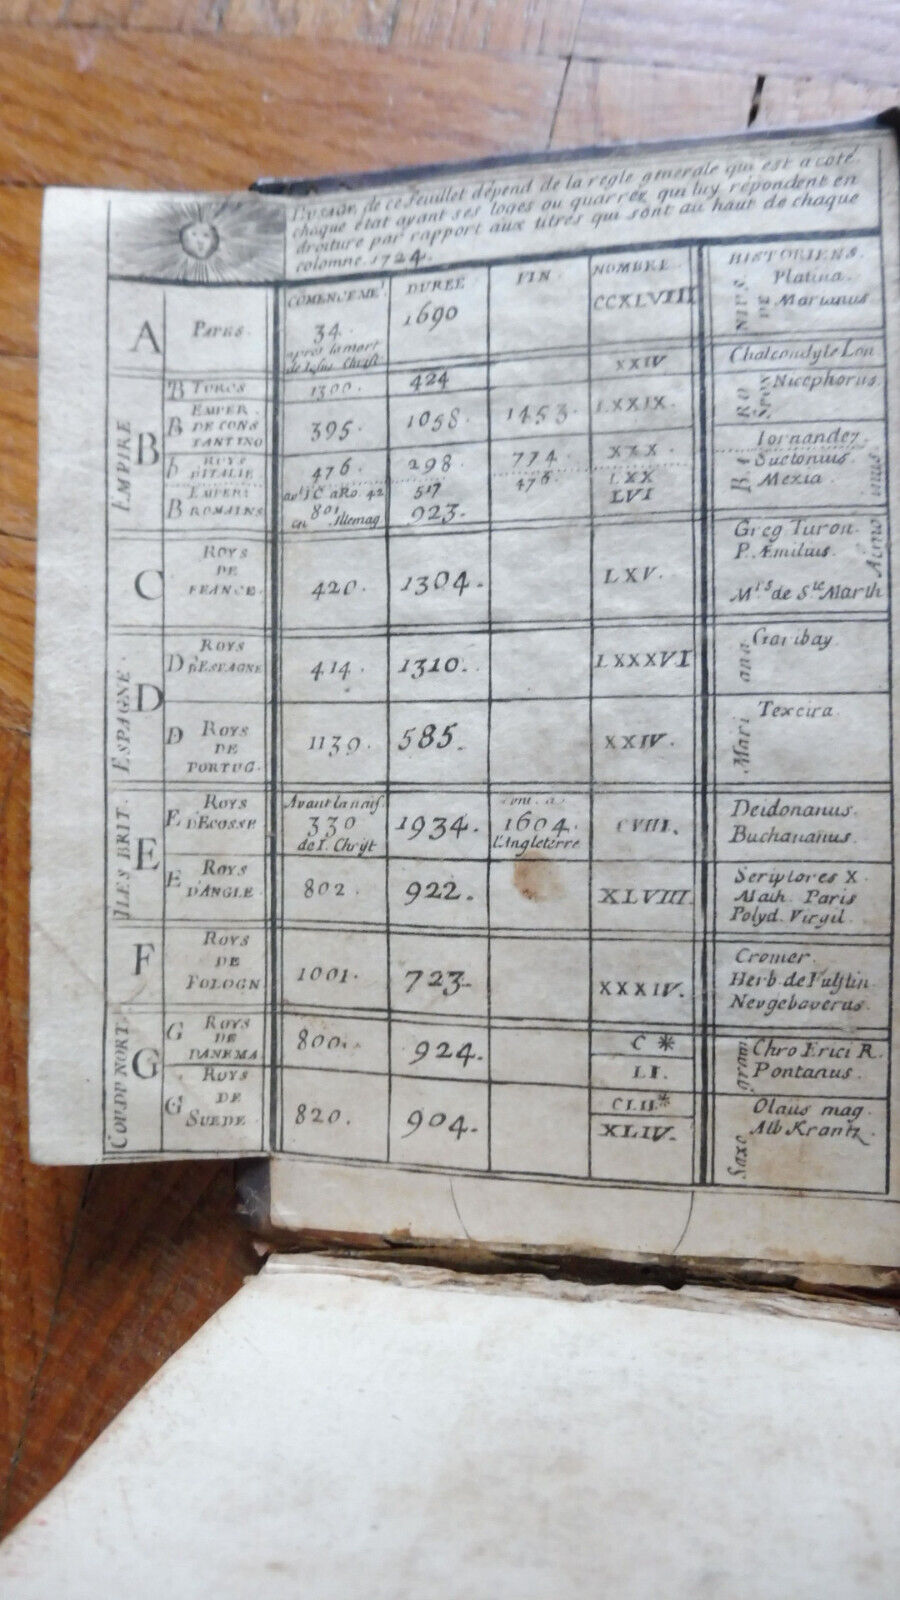 L'USAGE de ce feuillet dépend de la regle generale qui est a coté.
chaque état ayant ses loges ou quarrez qui luy répondent en
droiture par rapport aux titres qui sont au haut de chaque
colomne. 1724.
COMENCEMEt. DUREE FIN. NOMBRE. HISTORIENS.
A PAPES. 34. après la mort de Jesus Christ 1690 CCXLVIII Platina. Marianus
EMPIRE B
B TURCS 1300. 424 XXIV Chalcondyle Lon
B EMPER. DE CONS TANTINO 395. 1058. 1453. LXXIX. Nicephorus.
b ROYS D'ITALIE 476. 298. 774. XXX Iornandez.
B EMPER: ROMAINS avt J C a Ro. 42 517 476. LXX Suetonius
801 en Allemag 923. LVI Mexia
C ROYS DE FRANCE. 420. 1304. LXV. Greg Turon. P. Æmilius. Mrs de Ste Marth
ESPAGNE. D
D ROYS D'ESPAGNE 414. 1310. LXXXVI Garibay
D ROYS DE PORTUG. 1139. 585. XXIV. Texeira.
Mariana
ILES BRIT. E
E ROYS D'ECOSSE Avant la naiss 330 de J. Christ 1934. 1604. l'Angleterre CVIII. Deidonanus. Buchananus.
E ROYS D'ANGLE. 802. 922. XLVIII. Scriptores X. Math. Paris Polyd. Virgil.
F ROYS DE POLOGN 1001. 723. XXXIV. Cromer. Herb. de Fulstin Neugebaverus.
COU. DU NORT. G
G ROYS DE DANEMA 800. 924. C * LI. Chro Erici R. Pontanus.
G ROYS DE SUEDE 820. 904. CLII* XLIV. Olaus mag. Alb Krantz.
Saxo gram